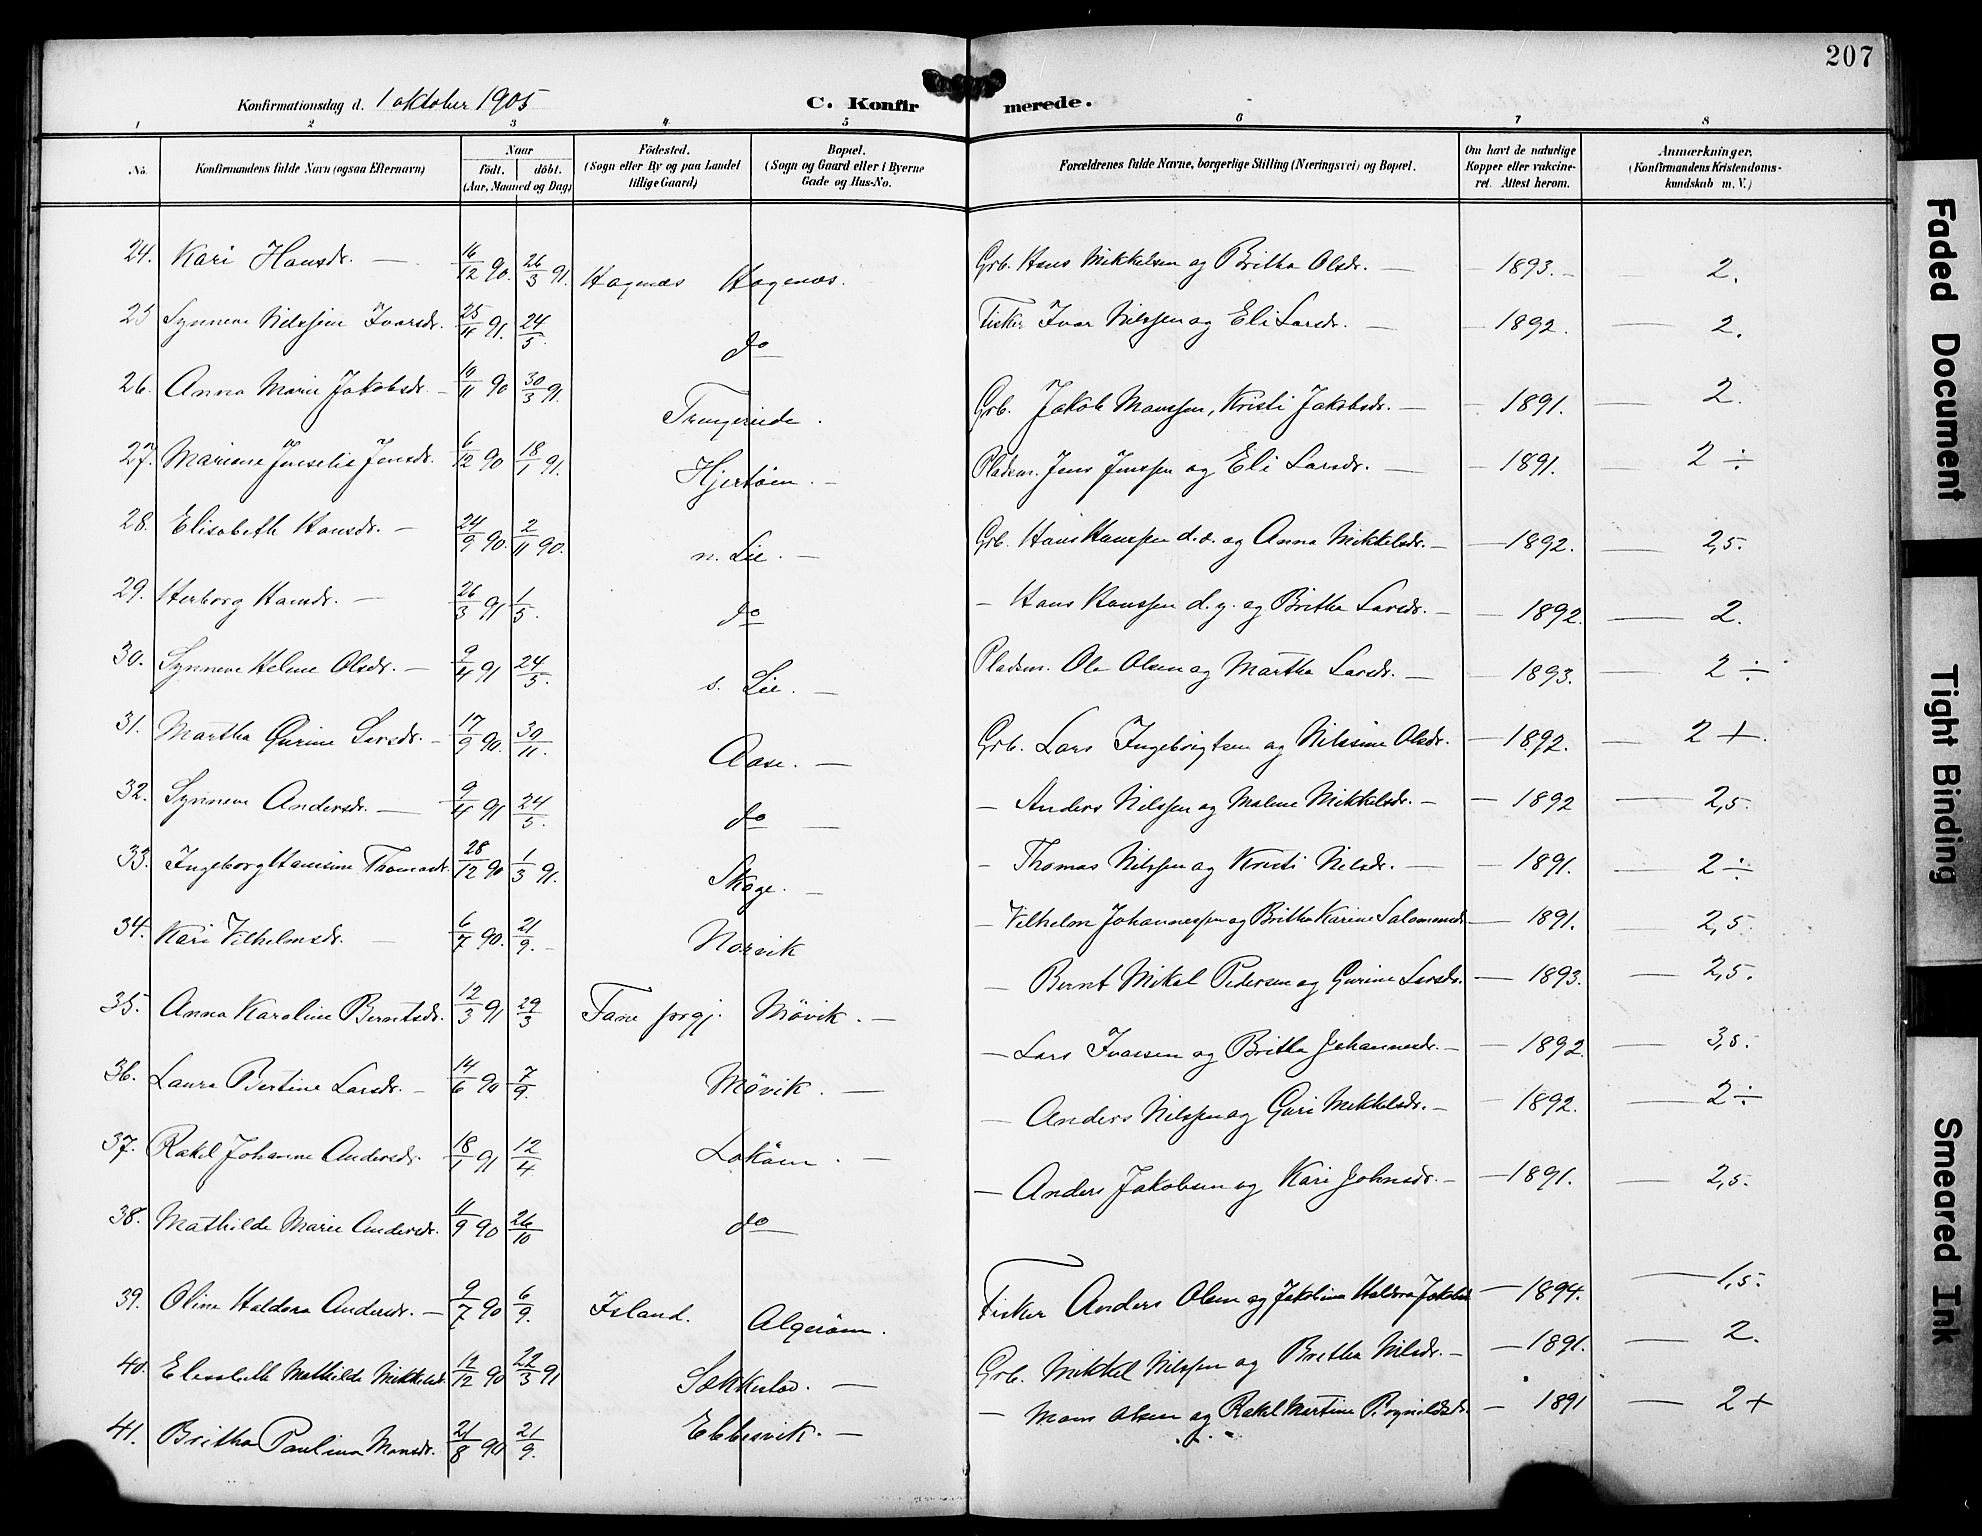 207
Konfirmationsdag d. 1 oktober 1905
C. Konfirmerede.
1 2 3 4 5 6 7 8
No. Konfirmandens fulde Navn (ogsaa Efternavn) Naar födt. döbt. (Aar, Maaned og Dag) Födested. (Sogn eller By og paa Landet tillige Gaard) Bopæl. (Sogn og Gaard eller i Byerne Gade og Hus-No. Forældrenes fulde Navne, borgerlige Stilling (Næringsvei) og Bopæl. Om havt de naturlige Kopper eller vakcineret. Attest herom. Anmærkninger, (Konfirmandens Kristendomskundskab m. V.)
24. Kari Hansdr. — 16/12 90. 26/3 91. Hagenæs Hagenæs. Grb. Hans Mikkelsen og Britha Olsdr. — 1893. — 2.
25 Synneve Nilssine Ivarsdr. 25/4 91. 24/5. do Fisker Ivar Nilssen og Eli Larsdr. — 1892. — 2.
26. Anna Marie Jakobsdr. — 10/11 90 30/3 91. Trengereide. Grb. Jakob Monssen, Kristi Jakobsdr. — 1891. — 2.
27. Mariane Jenselie Jensdr. 6/12 90 18/1 91. Hjertöen. — Pladsm. Jens Jenssen og Eli Larsdr. — 1891. — 2 ÷
28. Elisabeth Hansdr. — 24/9 90. 2/11 90. n. Lie. — Grb. Hans Hanssen d.e. og Anna Mikkelsdr. — 1892. — 2,5.
29. Herborg Hansdr. — 26/3 91 1/5. do — Hans Hanssen d.y. og Britha Larsdr. — 1892. — 2.
30. Synneve Helene Olsdr. — 9/4 91 24/5. s. Lie. — Pladsm. Ole Olsen og Martha Larsdr. — 1893. — 2 ÷
31. Martha Gurine Larsdr. — 17/9 90. 30/11. Aase. — Grb. Lars Ingebrigtsen og Nilsine Olsdr. — 1892. — 2 +.
32. Synneve Andersdr. — 9/4 91 24/5. do — — Anders Nilssen og Malene Mikkelsdr. — 1892 — 2,5.
33. Ingeborg Hansine Thomasdr. 28/12 90 1/3 91. Skage. — — Thomas Nilssen og Kristi Nilsdr. — 1891. — 2 ÷
34. Kari Vilhelmsdr. — 6/7 90. 21/9. — Norvik — Vilhelm Johannessen og Britha Karine Salomonsdr. — 1891. — 2,5.
35. Anna Karoline Berntsdr. 12/3 91 29/3 Fane prgj. Mövik. — — Bernt Mikal Pedersen og Gurine Larsdr. — 1893. — 2,5.
36. Laura Bertine Larsdr. — 14/6 90 7/9. Mövik. — — Lars Ivarsen og Britha Johannesdr. — 1892. — 3,5.
37. Rakel Johanne Andersdr. 18/1 91 12/4 Loköen. — — Anders Nilssen og Guri Mikkelsdr. — 1892. — 2 ÷
38. Mathilde Marie Andersdr. 11/9 90 26/10 do — Anders Jakobsen og Kari Johnsdr. — 1891. — 2,5.
39. Oline Haldora Andersdr. — 9/7 90 6/9. Island. Algeröen. Fisker Anders Olsen og Jakobina Haldora Jakobsd — 1894. — 1,5.
40. Elisabeth Mathilde Mikkelsd. 12/12 90 22/3 91 Sekkestad. — Grb. Mikkel Nilssen og Britha Nilsdr. — 1891. — 2.
41. Britha Paulina Monsdr. 21/8 90 21/9. Ebbesvik. — — Mons Olsen og Rakel Martine Brynildsdr. — 1891 — 2 +
Faded Document
Tight Binding
Smeared Ink